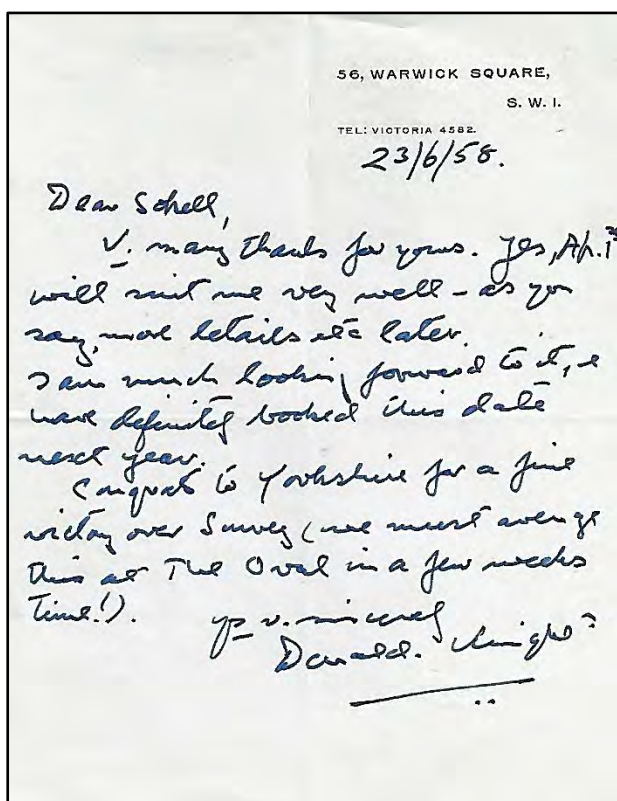 56, WARWICK SQUARE,
S. W. 1.
TEL: VICTORIA 4582.
23/6/58.
Dear Schell,
V. many thanks for yours. Yes, Ap. 1st
will suit me very well – as you
say, more details etc later.
I am much looking forward to it, &
have definitely booked this date
next year.
Congrats to Yorkshire for a fine
victory over Surrey (we must avenge
this at The Oval in a few weeks
time!).
yrs v. sincerely
Donald. Knight